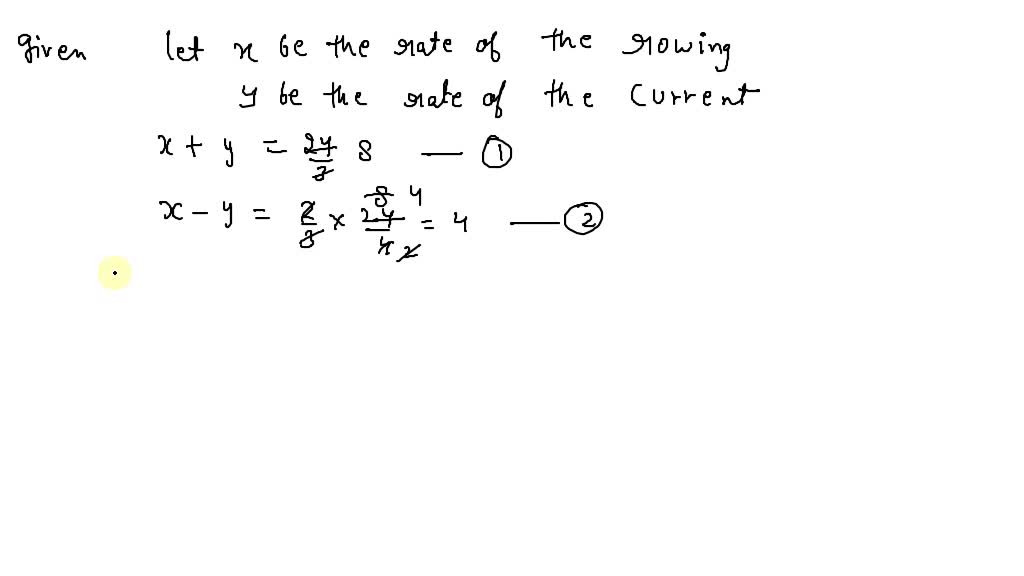 Given let x be the rate of the rowing
y be the rate of the current
x + y = 24/3 8 — ①
x - y = 2/3 × 24/4 8 4 2 = 4 — ②